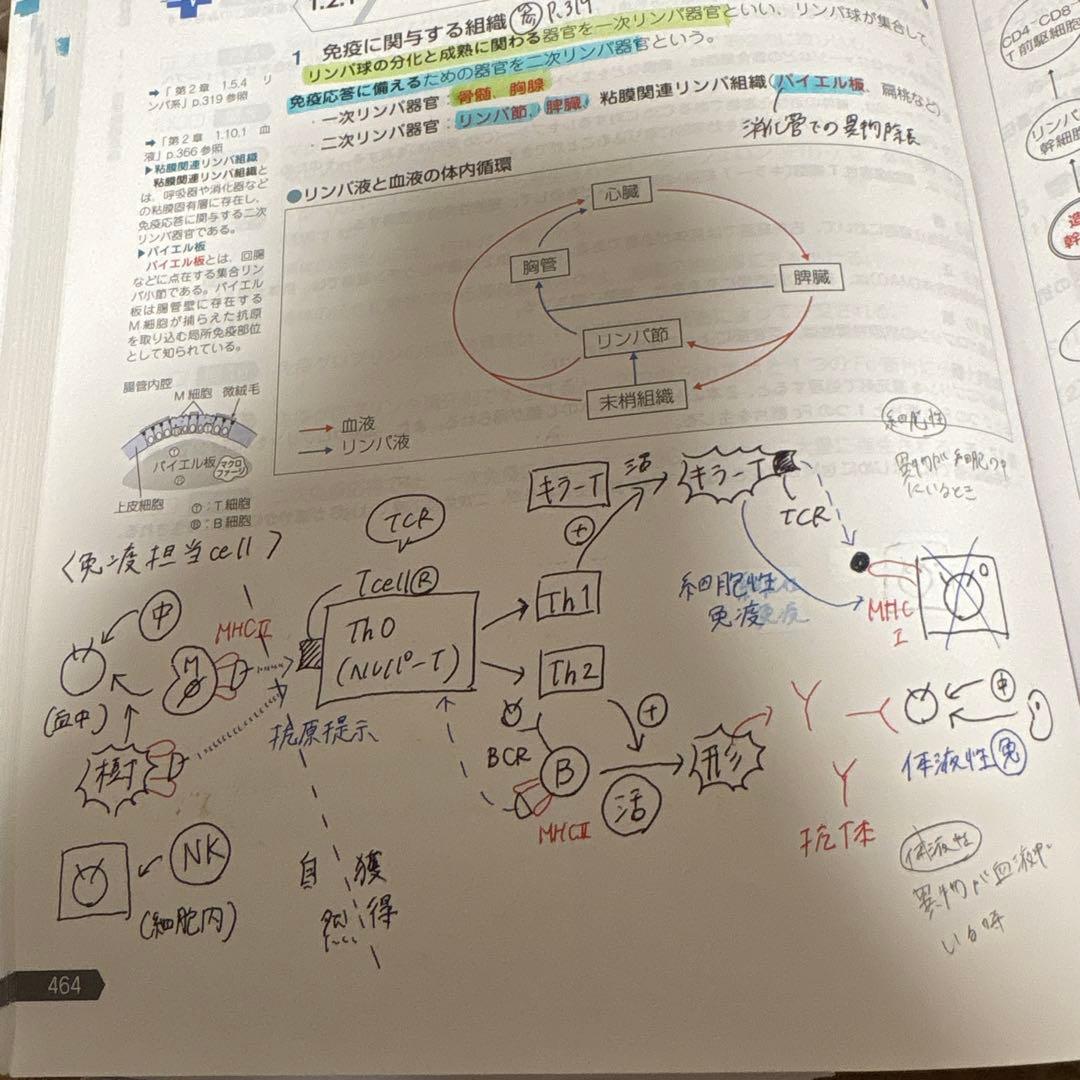 1.2.1
1 免疫に関与する組織 P.319
リンパ球の分化と成熟に関わる器官を一次リンパ器官といい、リンパ球が集合して
免疫応答に備えるための器官を二次リンパ器官という。
・一次リンパ器官：骨髄、胸腺
・二次リンパ器官：リンパ節、脾臓、粘膜関連リンパ組織（パイエル板、扁桃など）
消化管での異物除去
➡「第2章 1.5.4 リ
ンパ系」p.319 参照
➡「第2章 1.10.1 血
液」p.366 参照
▶粘膜関連リンパ組織
粘膜関連リンパ組織と
は、呼吸器や消化器など
の粘膜固有層に存在し、
免疫応答に関与する二次
リンパ器官である。
▶パイエル板
パイエル板とは、回腸
などに点在する集合リン
パ小節である。パイエル
板は腸管壁に存在する
M細胞が捕らえた抗原
を取り込む局所免疫部位
として知られている。
腸管内腔
M細胞 微絨毛
T
パイエル板
マクロ
ファージ
B
上皮細胞
T：T細胞
B：B細胞
●リンパ液と血液の体内循環
心臓
胸管
脾臓
リンパ節
末梢組織
→ 血液
→ リンパ液
CD4⁻CD8⁻
T前駆細胞
リンパ
幹細胞
造
幹
〈免疫担当cell〉
中
(血中)
MΦ
MHCⅡ
樹
NK
(細胞内)
抗原提示
自然
獲得
TCR
Tcell R
Th0
(ヘルパーT)
Th1
Th2
+
キラーT
活
キラーT
TCR
細胞性
免疫
MHC
Ⅰ
細胞性
異物が細胞の中
にいるとき
BCR
B
MHCⅡ
+
活
形
抗体
中
体液性免
体液性
異物が血液中
いる時
464